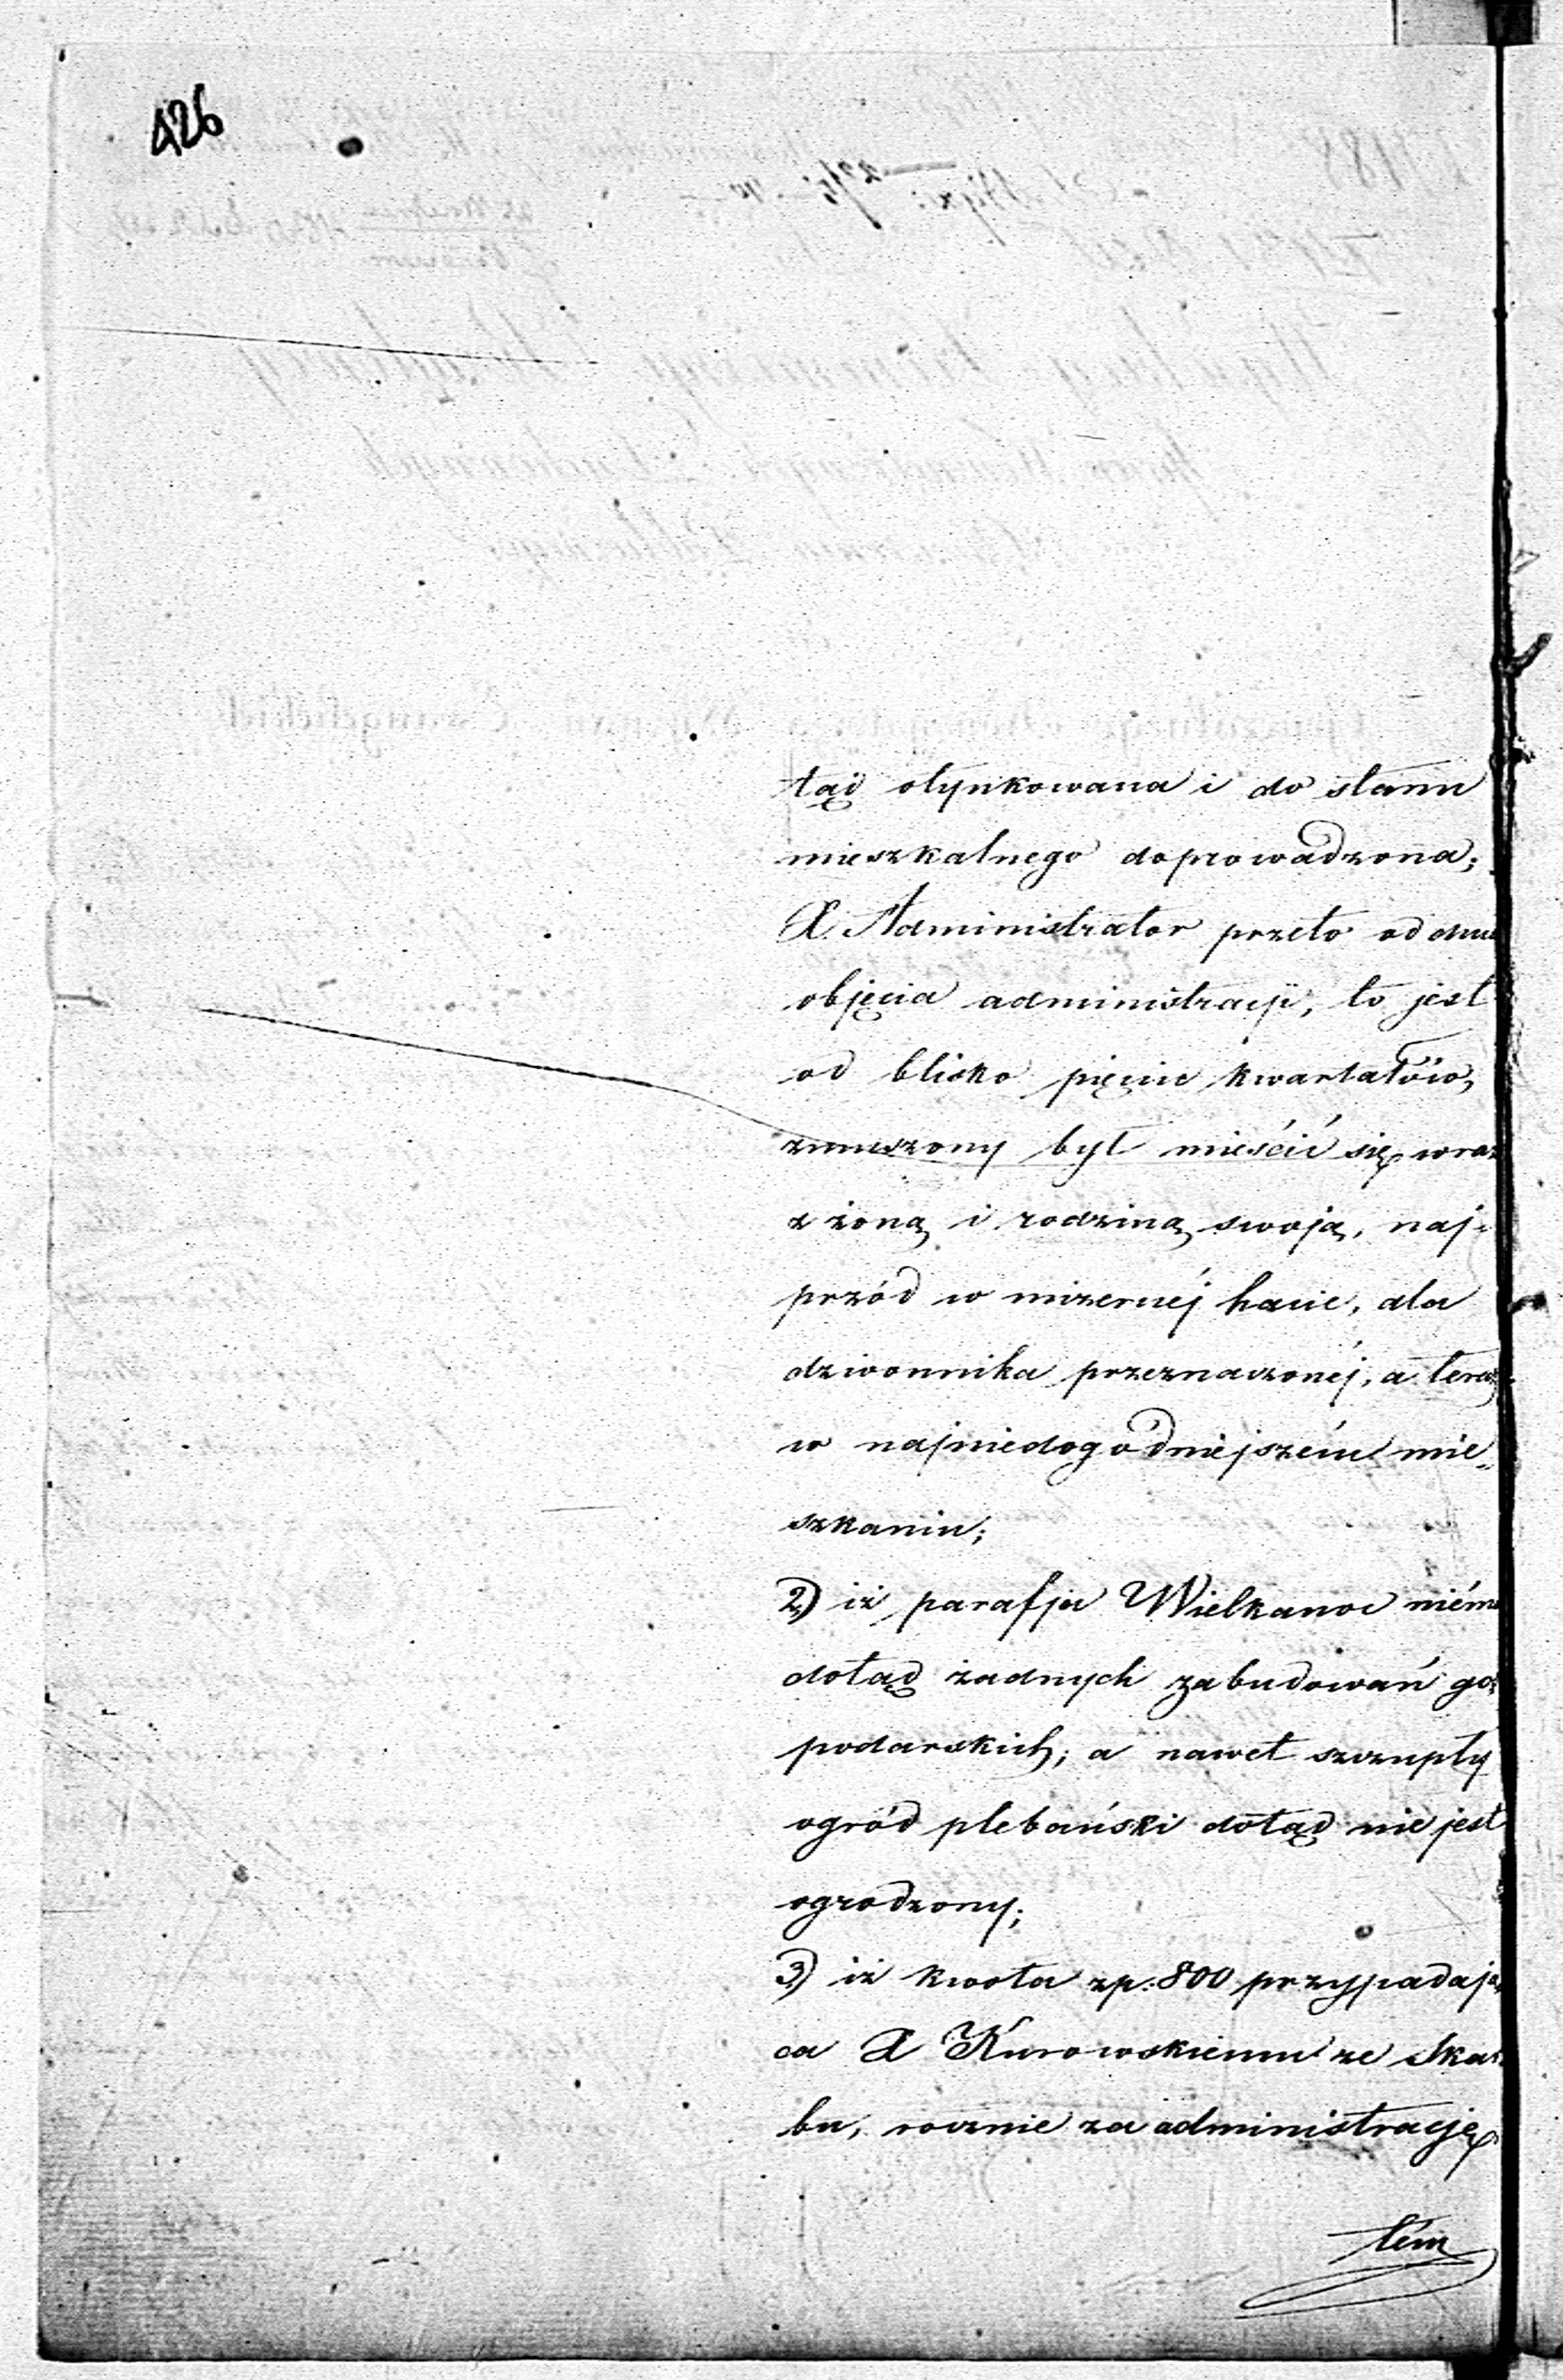 426
tąd otynkowana i do stanu
mieszkalnego doprowadzona;
X. Administrator przeto od dnia
objęcia administracji, to jest
od blisko pięciu kwartałów,
zmuszony był mieścić się wraz
z żoną i rodziną swoją, naj-
przód w mizernéj hacie, dla
dzwonnika przeznaczonéj, a teraz
w najniedogódniejszém mie-
szkaniu;
2) iż parafja Wielkanoc niéma
dotąd żadnych zabudowań gos
podarskich; a nawet szczupły
ogród plebański dotąd nie jest
ogrodzony;
3) iż kwota zp: 800 przypadają
ca X Kurowskiemu ze Skar
bu, rocznie za administrację
tém